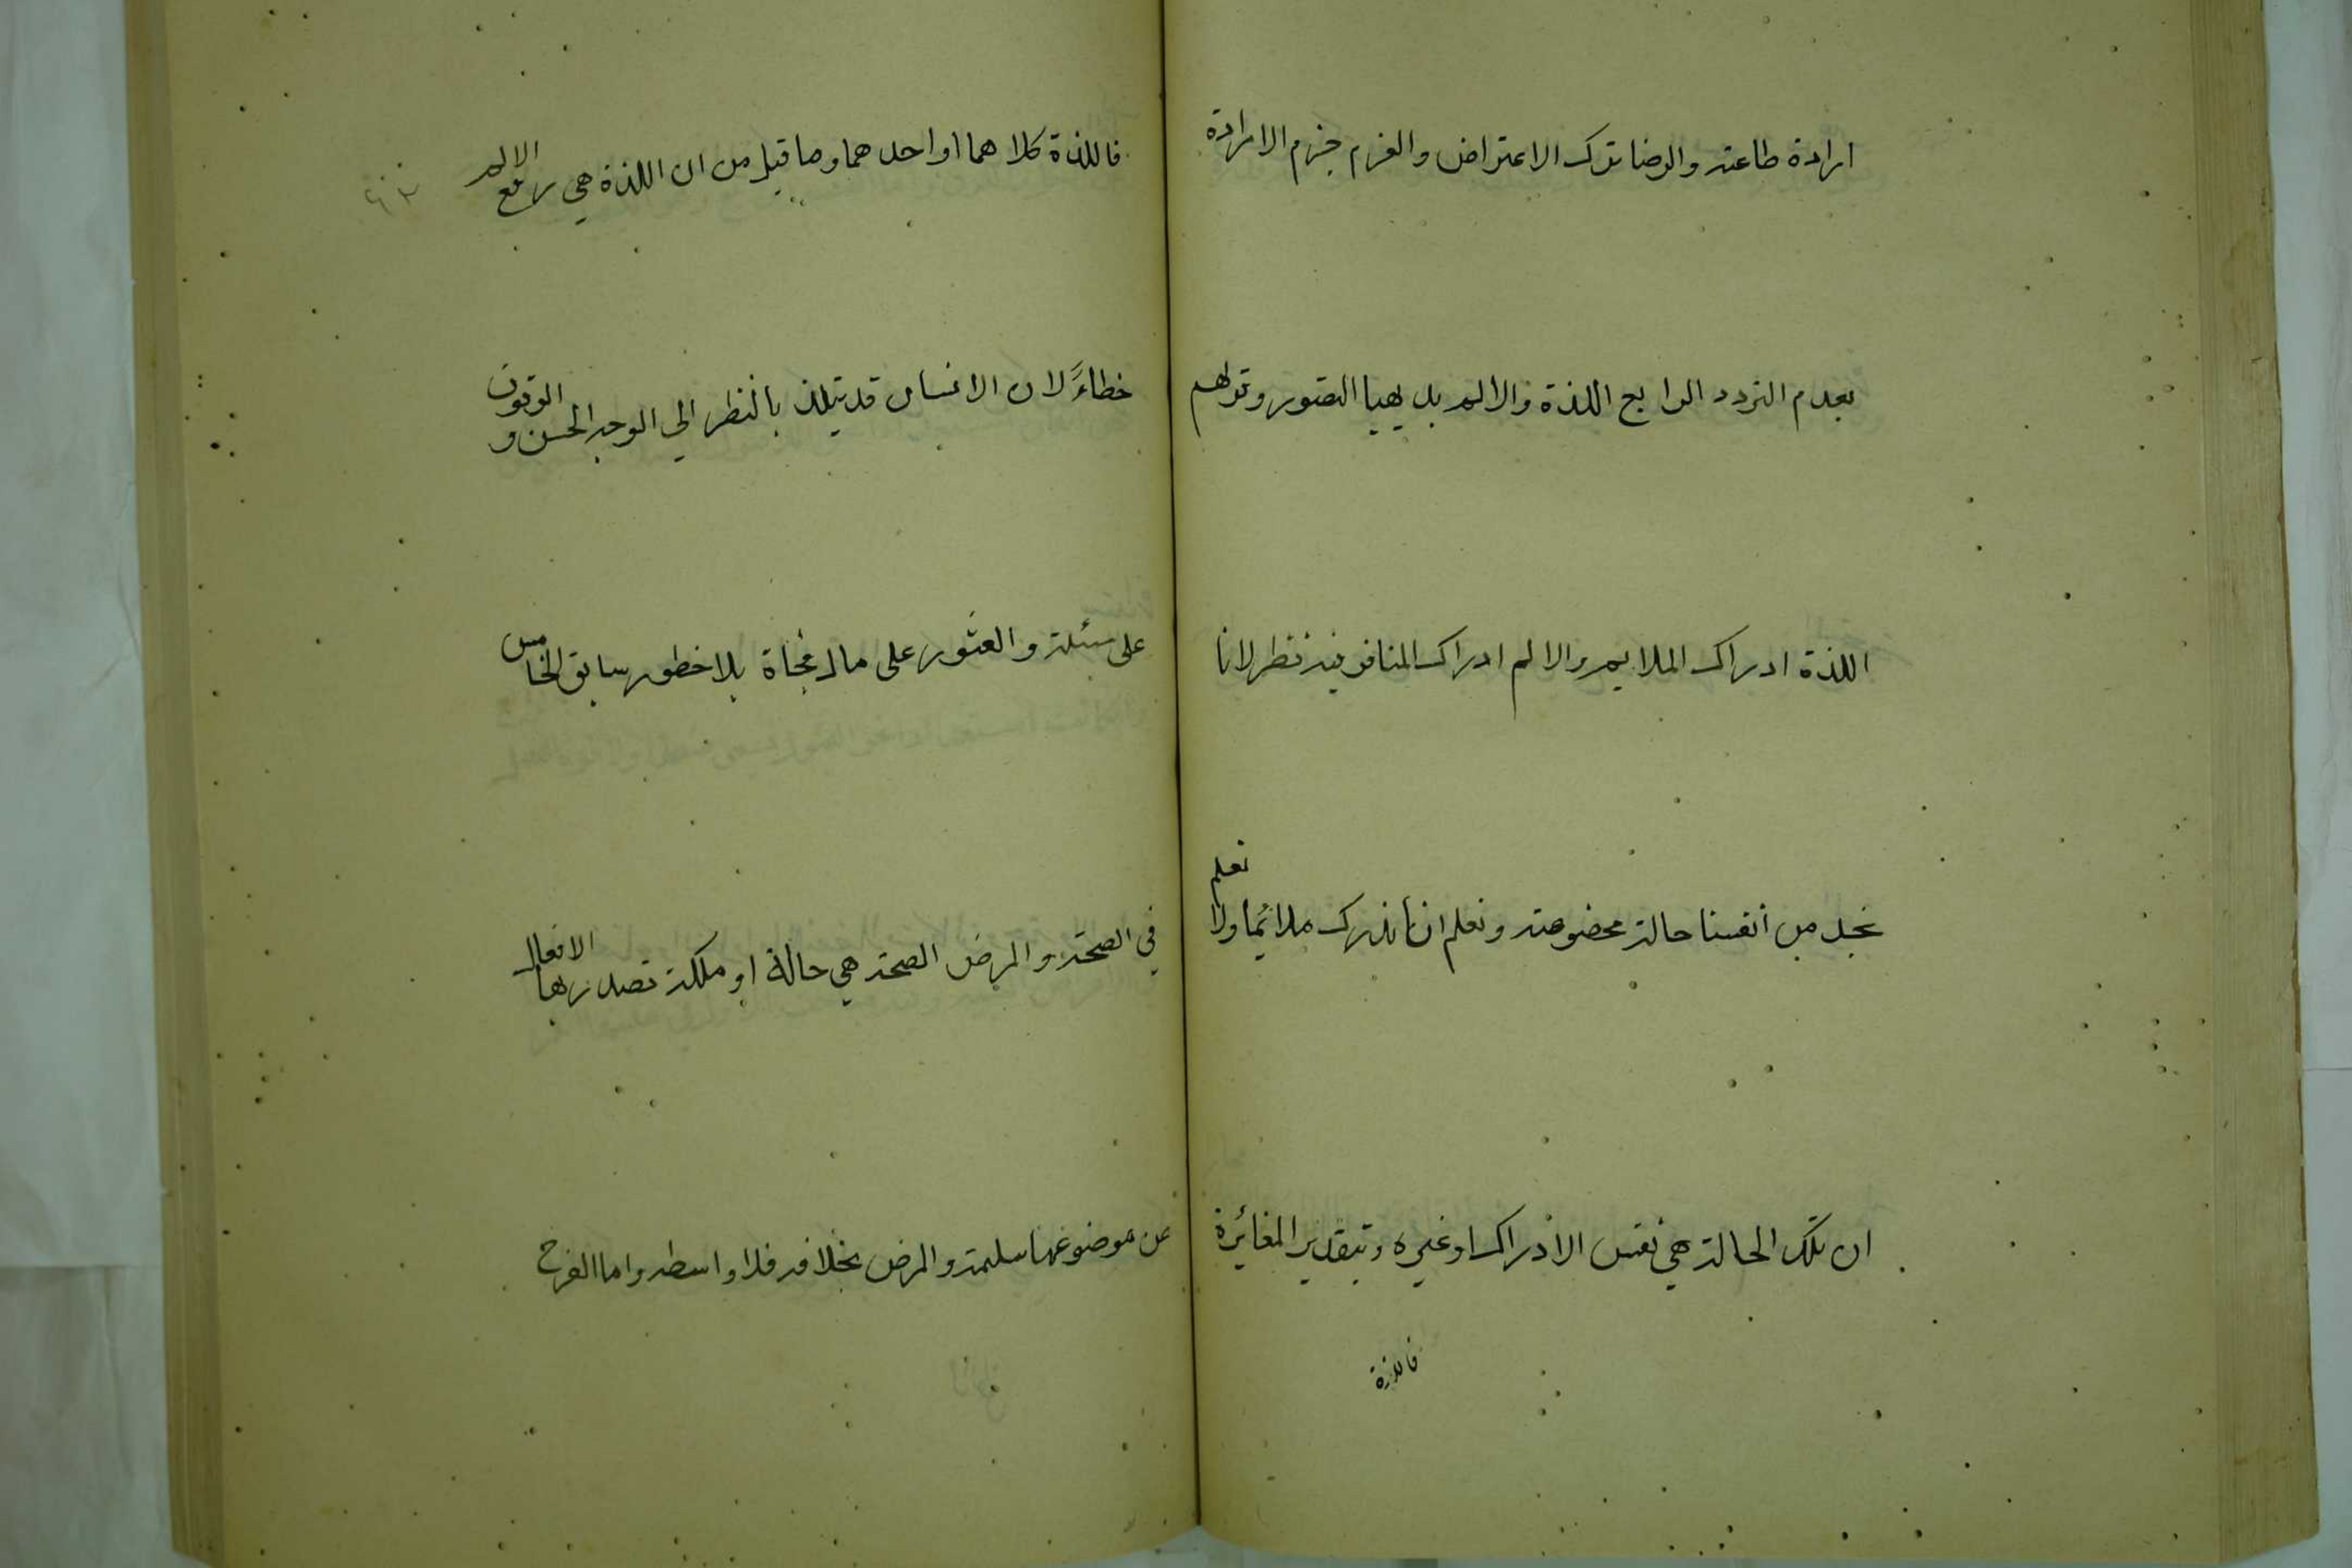 ارادة طاعته والرضا ترك الاعتراض والعزم جزم الارادة
بعدم التردد الرابع اللذة والالم بديهيا التصور وقولهم
اللذة ادراك الملايم والالم ادراك المنافر فيه نظر لانا
نجد من انفسنا حالة مخصوصة ونعلم انا ندرك ملائما ولا نعلم
ان تلك الحالة هي نفس الادراك او غيره وبتقدير المغائرة
فاللذة
فاللذة كلاهما او احدهما وما قيل من ان اللذة هي رفع الالم
خطاءً لان الانسان قد يتلذ بالنظر الي الوجه الحسن و الوقوف
على مسئلة والعثور على مال فجاة بلا خطور سابق الخامس
في الصحة والمرض الصحة هي حالة او ملكة تصدر بها الافعال
عن موضوعها سليمة والمرض بخلافه فلا واسطه واما الفرح